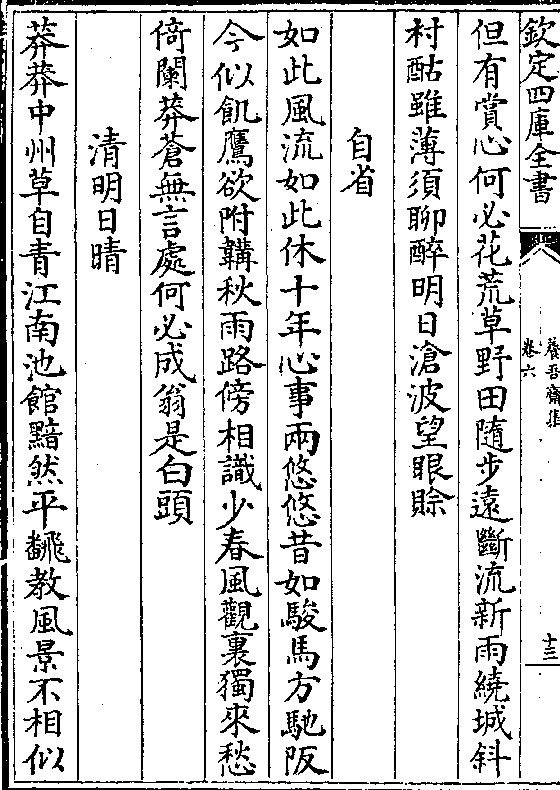 欽定四庫全書
養吾齋集
卷六
十三
但有賞心何必花荒草野田隨步遠斷流新雨繞城斜
村酤雖薄須聊醉明日滄波望眼賒
自省
如此風流如此休十年心事兩悠悠昔如駿馬方馳阪
今似飢鷹欲附韝秋雨路傍相識少春風觀裏獨來愁
倚闌莽蒼無言處何必成翁是白頭
清明日晴
莽莽中州草自青江南池館黯然平飜教風景不相似